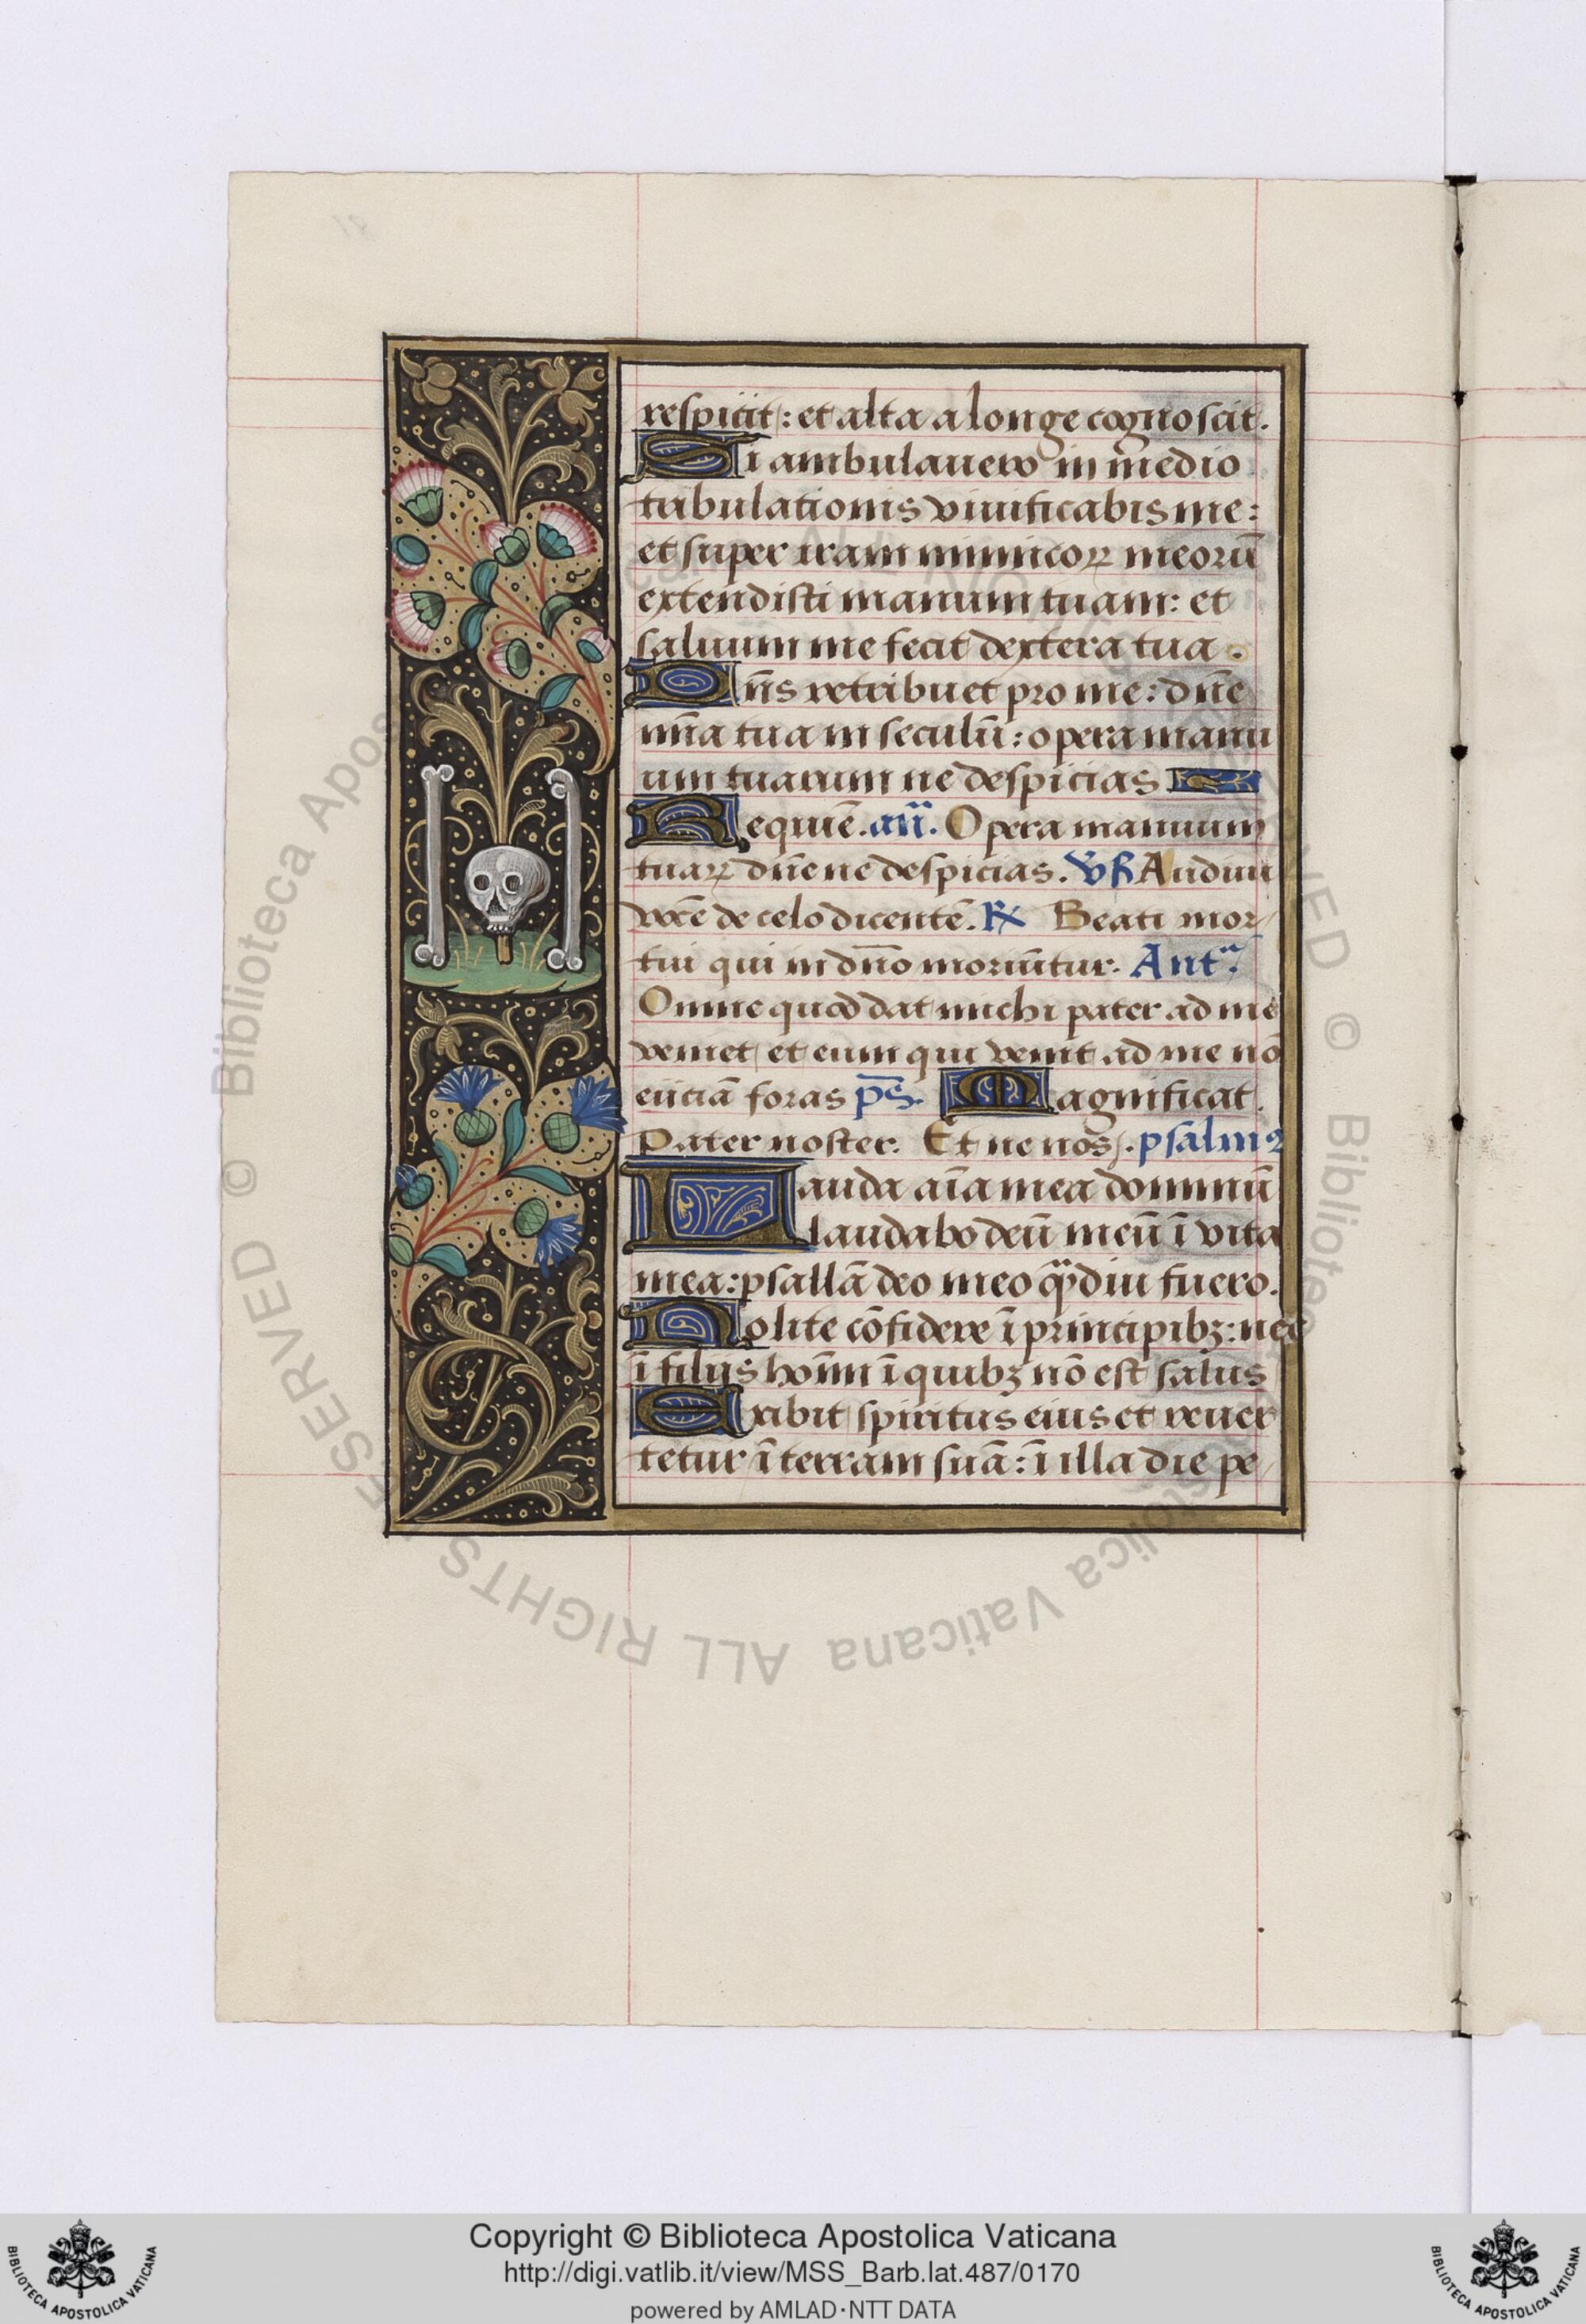 respicit: et alta a longe cognoscit.
Si ambulauero in medio
tribulationis viuificabis me:
et super iram inimicoꝝ meorū
extendisti manum tuam: et
saluum me fecit dextera tua.
Dn̄s retribuet pro me: dn̄e
mīa tua in seculū: opera manu
um tuarum ne despicias
Requiē. an̄. Opera manuum
tuaꝝ dn̄e ne despicias. V̄ß Audiui
vocē de celo dicentē. ℞ Beati mor
tui qui in dn̄o moriūtur. Antᵃ.
Omne quod dat michi pater ad me
veniet et eum qui venit ad me nō
eiiciā foras ps̄. Magnificat.
Pater noster. Et ne nos. psalmꝰ
Lauda aīa mea dominū
laudabo deū meū ī vita
mea: psallā deo meo qᵃ̄diu fuero.
Nolite cōfidere ī principibꝫ: nec
ī filiis hoīm ī quibꝫ nō est salus
Exibit spiritus eius et reuer
tetur ī terram suā: ī illa die pe
© Biblioteca Apostolica Vaticana ALL RIGHTS RESERVED
Copyright © Biblioteca Apostolica Vaticana
http://digi.vatlib.it/view/MSS_Barb.lat.487/0170
powered by AMLAD·NTT DATA
BIBLIOTECA APOSTOLICA VATICANA
BIBLIOTECA APOSTOLICA VATICANA